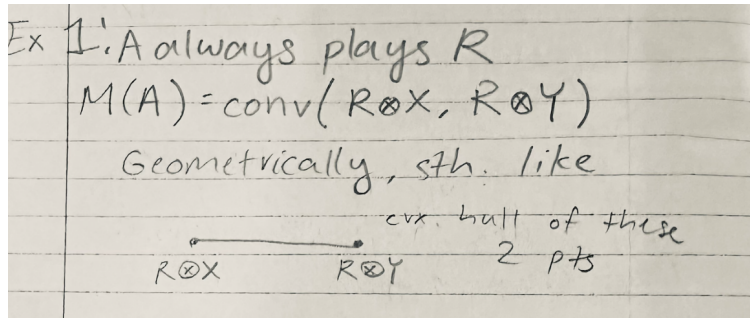 Ex 1: A always plays R
M(A) = conv( R⊗X, R⊗Y)
Geometrically, sth. like
cvx. hull of these
2 pts
R⊗X R⊗Y